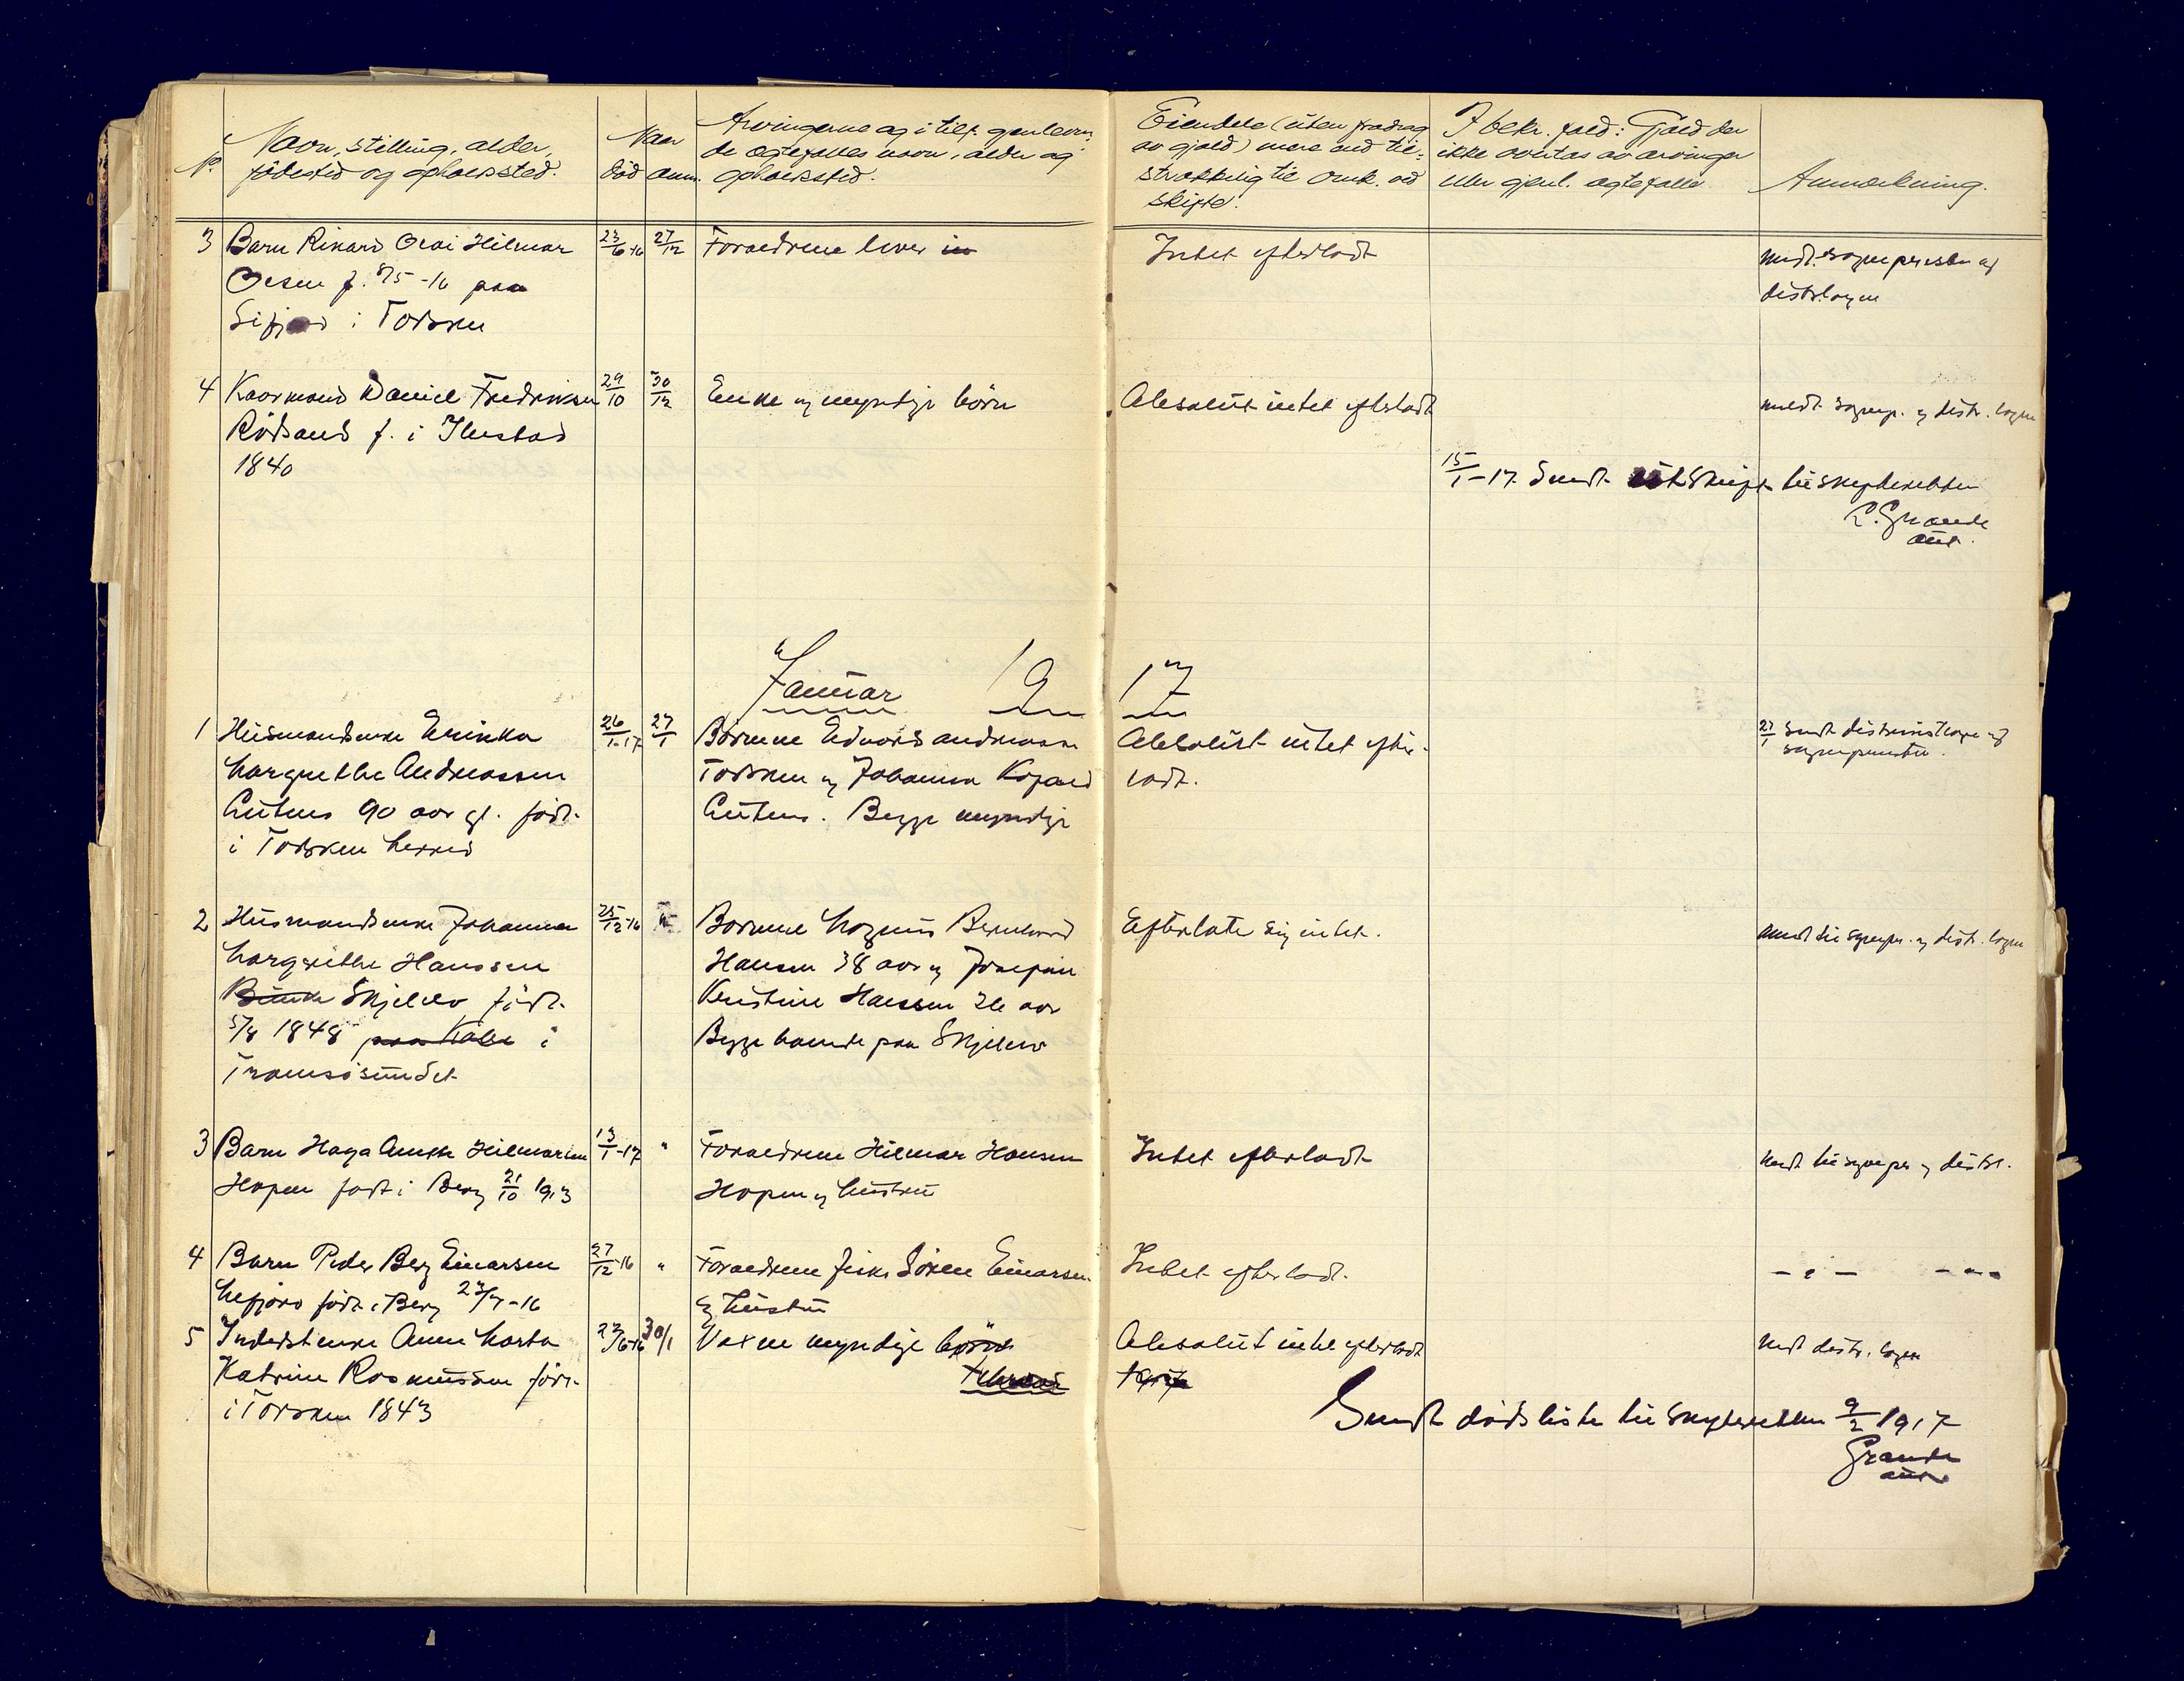 No.
Navn, stilling, alder,
fødested og opholdssted.
Naar
død anm.
Arvingerne og i tilf. gjenleven-
de ægtefælles navn, alder og
opholdssted.
Eiendele (uten fradrag
av gjæld) mere end til-
strækkelig til omk. ved
skifte.
I bekr. fald: Gjæld der
ikke overtas av arvinger
eller gjenl. ægtefælle
Anmærkning.
3 Barn Rikard Olai Hilmar 23/6 16 27/12 Forældrene lever Intet efterladt meldt sognepresten og
Olsen f. 8/5 -16 paa distr.lægen
Sifjord i Torsken
4 Kaarmand Daniel Fredriksen 29/10 30/12 Enke og myndige børn Absolut intet efterladt meldt sognep. og distr. lægen
Rødsand f. i
1840
15/1 -17. Sendt utskrift til skifteretten
L. Grande
1917
Januar
1 Husmandsenke Erikka 26/1-17 27/1 Børnene Edvard Andreassen Absolut intet efter- 27/1 Sendt distriktslæge og
Margrethe Andreassen Torsken og Johanna ladt. sognepresten.
90 aar gl. født Begge myndige
i Torsken herred
2 Husmandsenke Johanna 25/12-16 Børnene Magnus Bernhard Efterlate sig intet. meldt til sognepr. og distr. lægen
Margrethe Hanssen Hansen 38 aar og Josefine
Skjelelv født Kristine Hanssen aar
5/8 1848 i Begge boende paa Skjelelv
Tromsøsundet
3 Barn Haga Hilmarsen 13/1-17 " Forældrene Hilmar Hansen Intet efterladt meldt til sognepr og distr.
Hopen født i Berg 21/10 1913 Hopen og hustru
4 Barn Peder Berg Einarsen 27/12-16 " Forældrene fisker Sören Einarsen Intet efterladt. - " - - " -
Mefjord født i Berg 27/7-16 og hustru
5 Inderstenke Anne Marta 27/6-16 30/1 Voxne myndige børn Absolut intet efterladt meldt distr. lægen
Katrine Rasmussen født Februar 1917
i Torsken 1843
Sendt dødsliste til skifteretten 9/2 1917
Grande